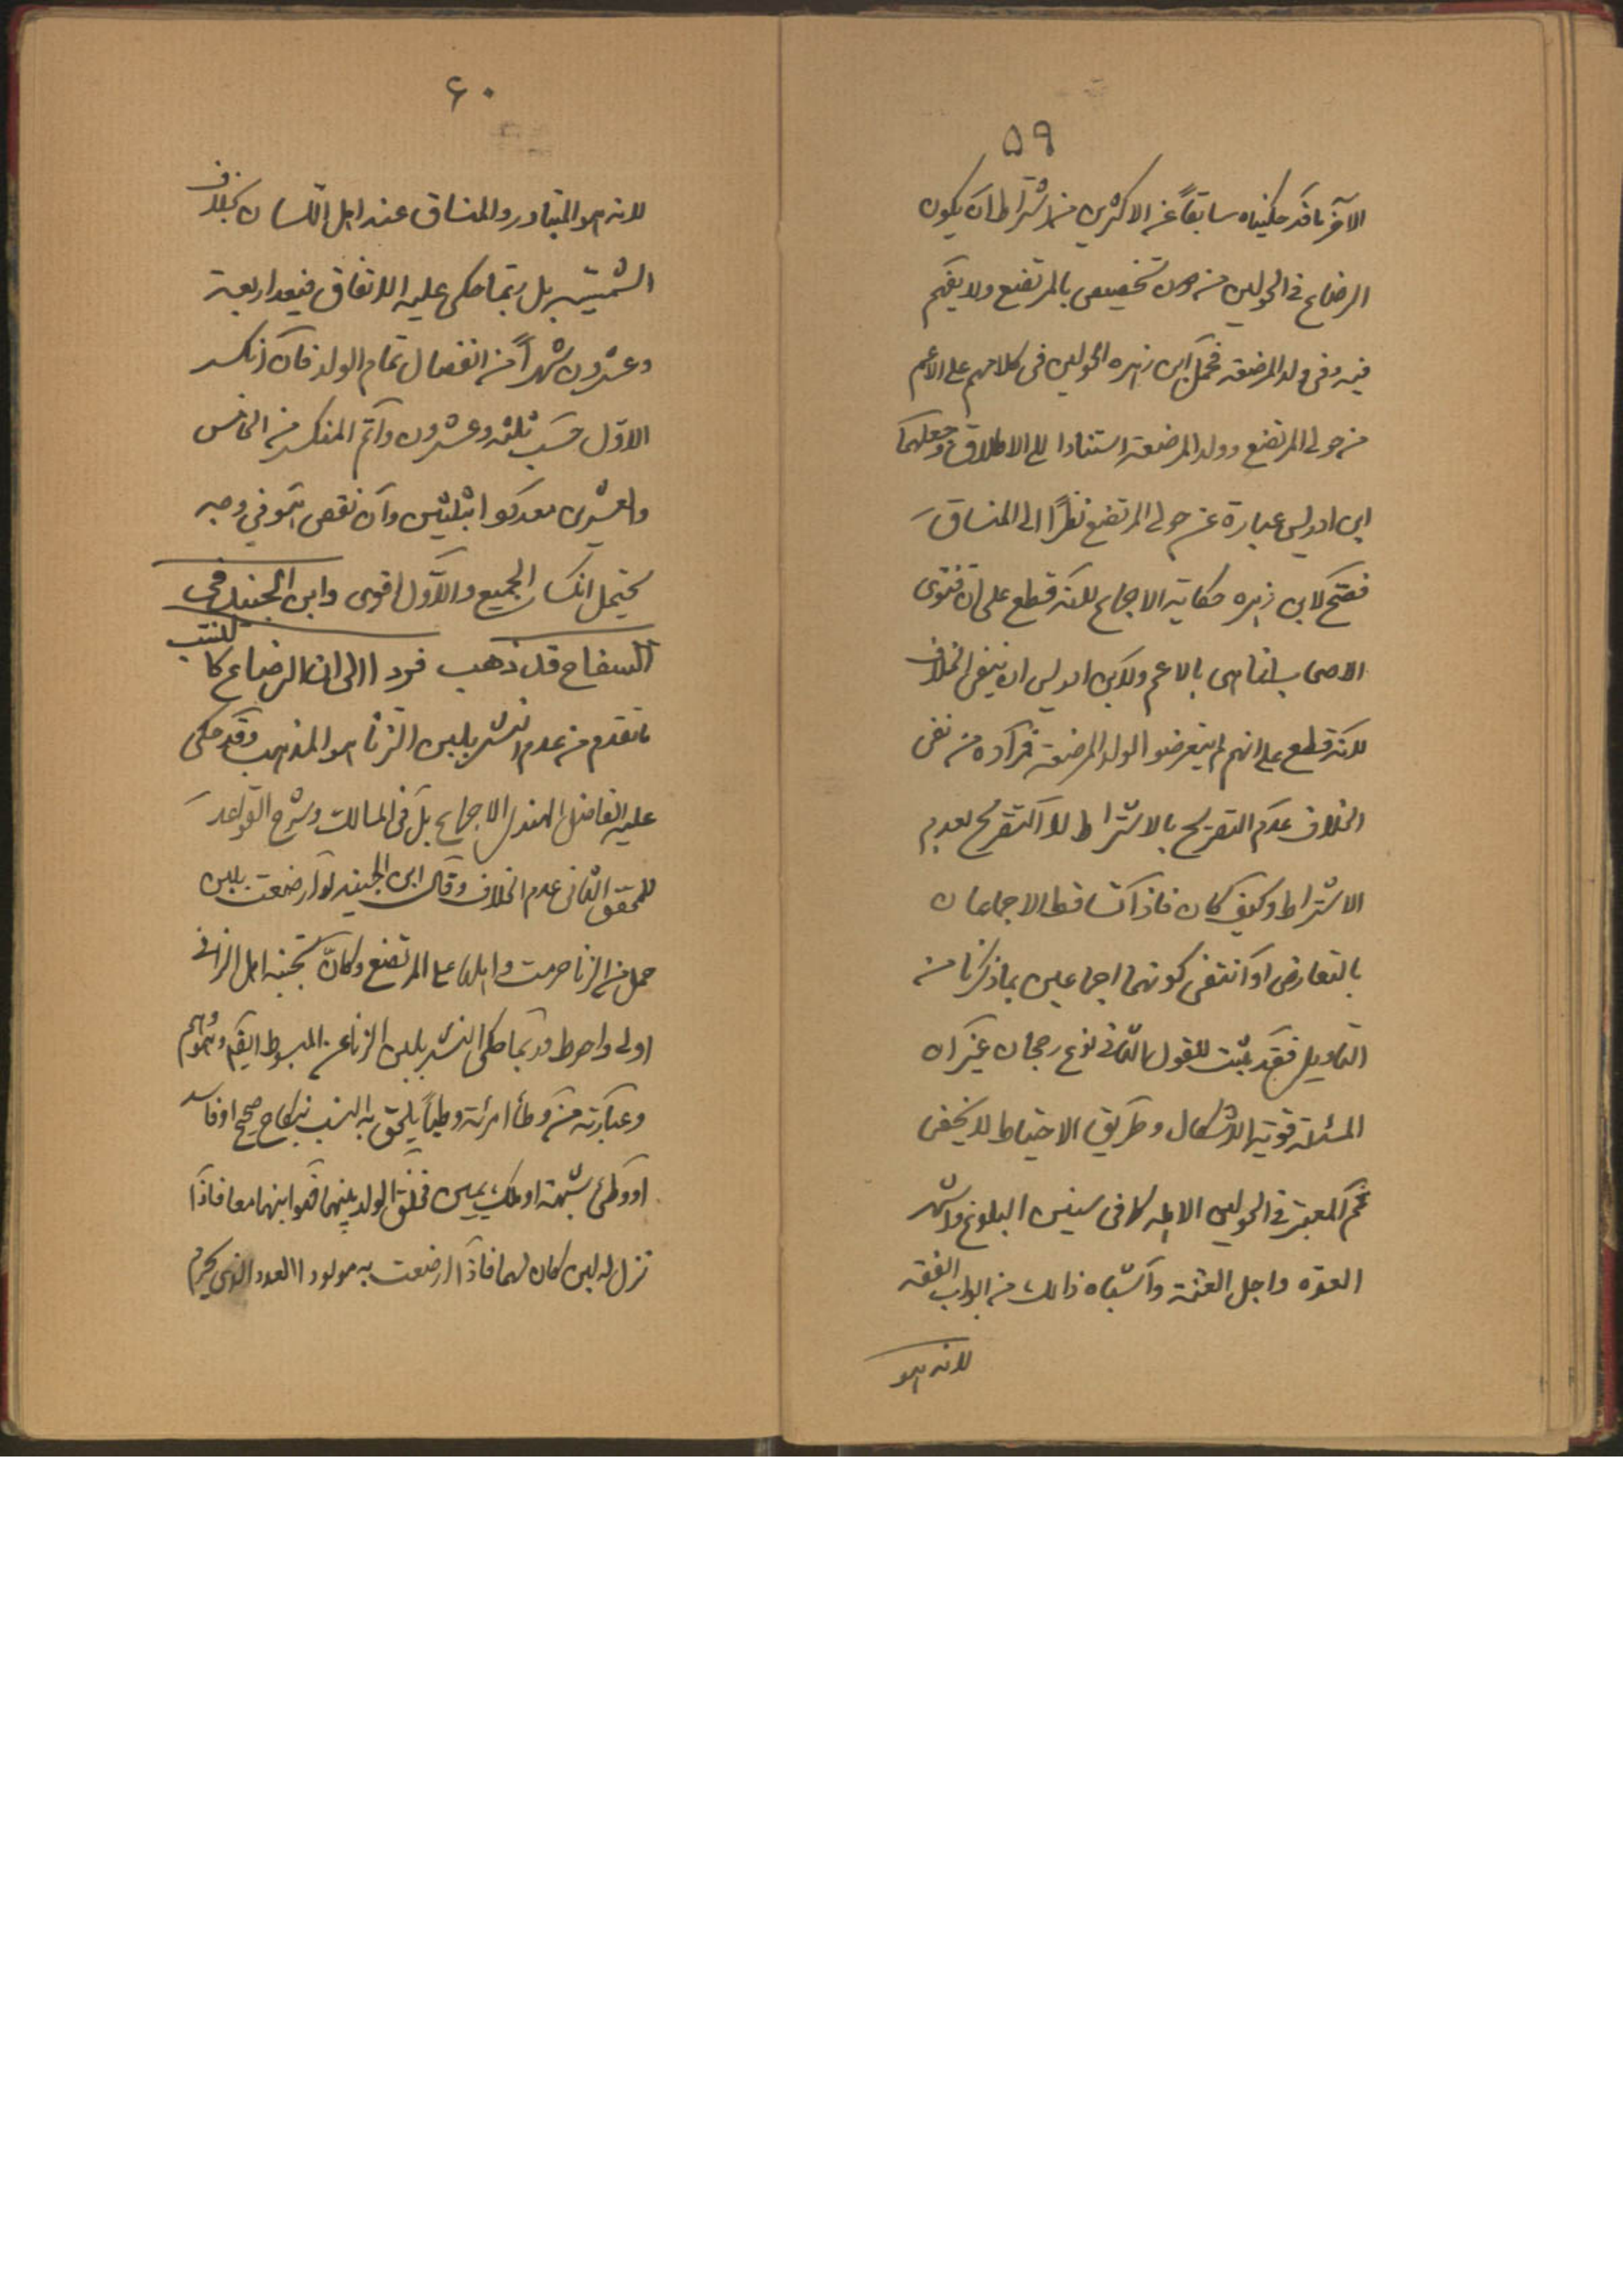 ٥٩
الآخر ما قد حكيناه سابقاً عن الاكثرين من اشتراط ان يكون
الرضاع في الحولين من دون تخصيص بالمرتضع ولا بغيره
فيه وفي ولد المرضعة فحمل ابن زهره الحولين في كلامهم على الاعم
من حولي المرتضع وولد المرضعة استنادا الى الاطلاق وجعلهما
ابن ادريس عبارة عن حولي المرتضع نظراً الى المنساق
فصح لابن زهره حكاية الاجماع لانه قطع على ان فتوى
الاصحاب انما هي بالاعم ولابن ادريس ان ينفي الخلاف
لانه قطع على انهم لم يتعرضوا لولد المرضعة فمراده من نفي
الخلاف عدم التصريح بالاشتراط لا التصريح بعدم
الاشتراط وكيف كان فاذا تساقط الاجماعان
بالتعارض او انتفى كونهما اجماعين بما ذكرنا من
التاويل فقد ثبت للقول الثاني نوع رجحان غير ان
المسئلة قوية الاشكال وطريق الاحتياط لا يخفى
ثم المعتبر في الحولين الاهلة كما في سنين البلوغ واشهر
العدة واجل العنة واشباه ذالك من ابواب الفقه
لانه هو
٦٠
لانه هو المتبادر والمنساق عند اهل اللسان بخلاف
الشمسية بل ربما حكى عليه الاتفاق فيعد اربعة
وعشرون شهراً من انفصال تمام الولد فان انكسر
الاول حسب ثلثة وعشرون واتم المنكسر من الخامس
والعشرين بعد كونه ثلثين وان نقص هو في وجه
يحتمل انكسار الجميع والاول اقوى وابن الجنيد في
السفاح قد ذهب فردا الى ان الرضاع كالنسب
ما تقدم من عدم النشر بلبن الزنا هو المذهب وقد حكى
عليه الفاضل الهندي الاجماع بل في المسالك وشرح القواعد
للمحقق الثاني عدم الخلاف وقال ابن الجنيد لو ارضعت بلبن
حمل من الزنا حرمت واهلها على المرتضع وكان تجنبه اهل الزاني
اولى واحوط وربما حكى النشر بلبن الزنا عن المبسوط ايضا وهو وهم
وعبارته من وطأ امرئة وطياً يلحق به النسب بنكاح صحيح او فاسد
او وطئ شبهة او ملك يمين فخلق الولد بينهما فهو ابنهما معا فاذا
نزل له لبن كان لهما فاذا ارضعت به مولودا العدد الذي يحرم